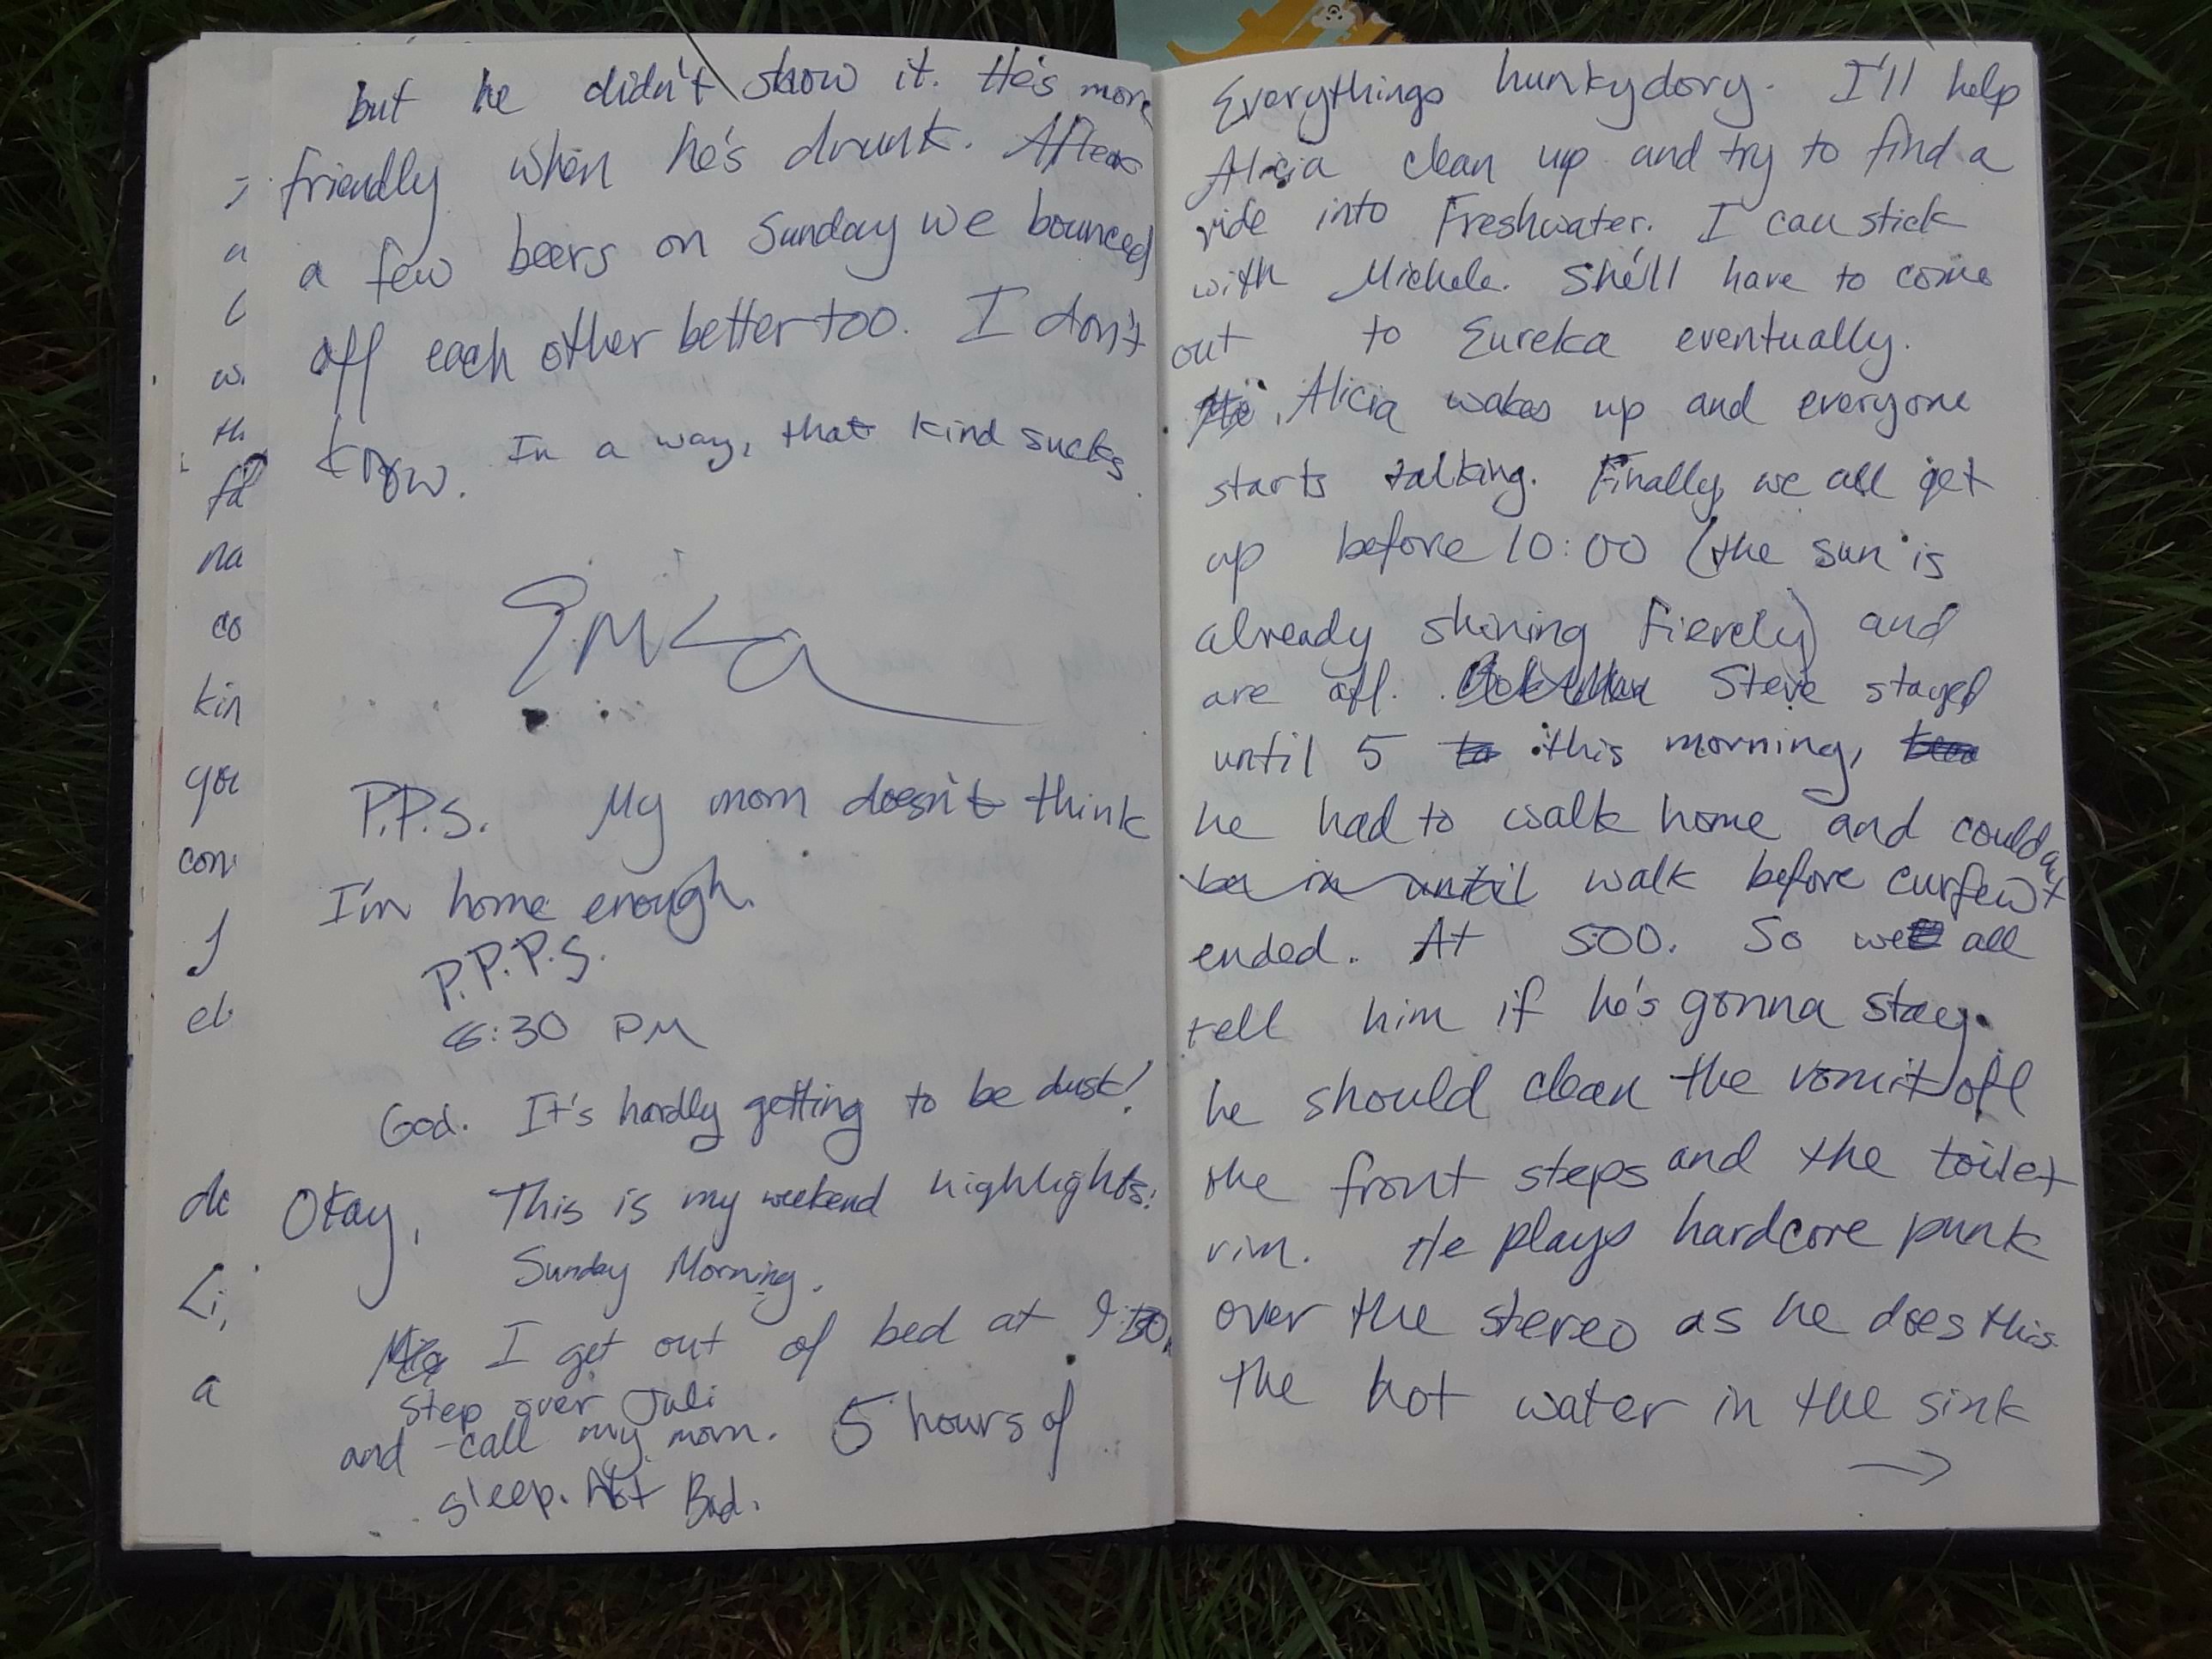 but he didn't show it. He's more
friendly when he's drunk. After
a few beers on Sunday we bounced
off each other better too. I don't
know. In a way, that kind sucks.
P.P.S. My mom doesn't think
I'm home enough.
P.P.P.S.
8:30 PM
God. It's hardly getting to be dusk!
Okay, This is my weekend highlights:
Sunday Morning.
I get out of bed at 9:30,
step over Juli
and call my mom. 5 hours of
sleep. Not Bad.
Everythings hunkydory. I'll help
Alicia clean up and try to find a
ride into Freshwater. I can stick
with Michele. She'll have to come
out to Eureka eventually.
Alicia wakes up and everyone
starts talking. Finally, we all get
up before 10:00 (the sun is
already shining fierely) and
are off. Steve stayed
until 5 to this morning,
he had to walk home and couldn't
be in until walk before curfew
ended. At 500. So we all
tell him if he's gonna stay.
he should clean the vomit off
the front steps and the toilet
rim. He plays hardcore punk
over the stereo as he does this.
the hot water in the sink
→
w.
th
na
co
kin
you
con
de
Li,
a